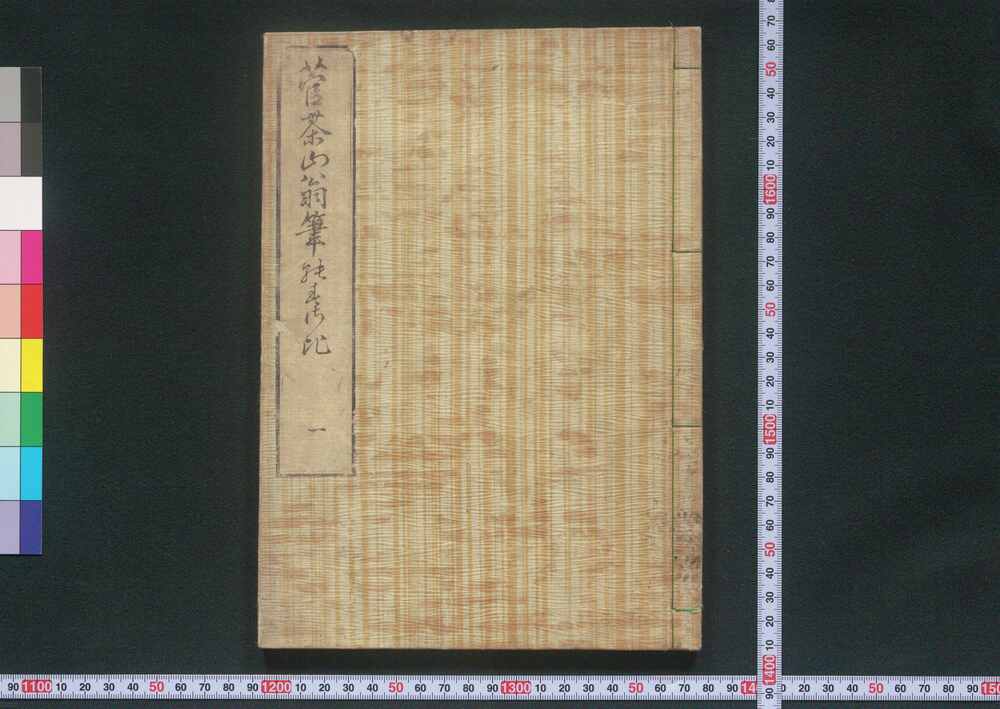 菅茶山翁筆能春佐比
一
70 60 50 40 30 20 10 1600 90 80 70 60 50 40 30 20 10 1500 90 80 70 60 50 40 30 20 10 1400 90
90 1100 10 20 30 40 50 60 70 80 90 1200 10 20 30 40 50 60 70 80 90 1300 10 20 30 40 50 60 70 80 90 20 30 40 50 60 70 80 90